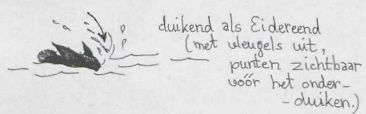 duikend als Eidereend
(met vleugels uit,
punten zichtbaar
vóór het onder-
-duiken.)